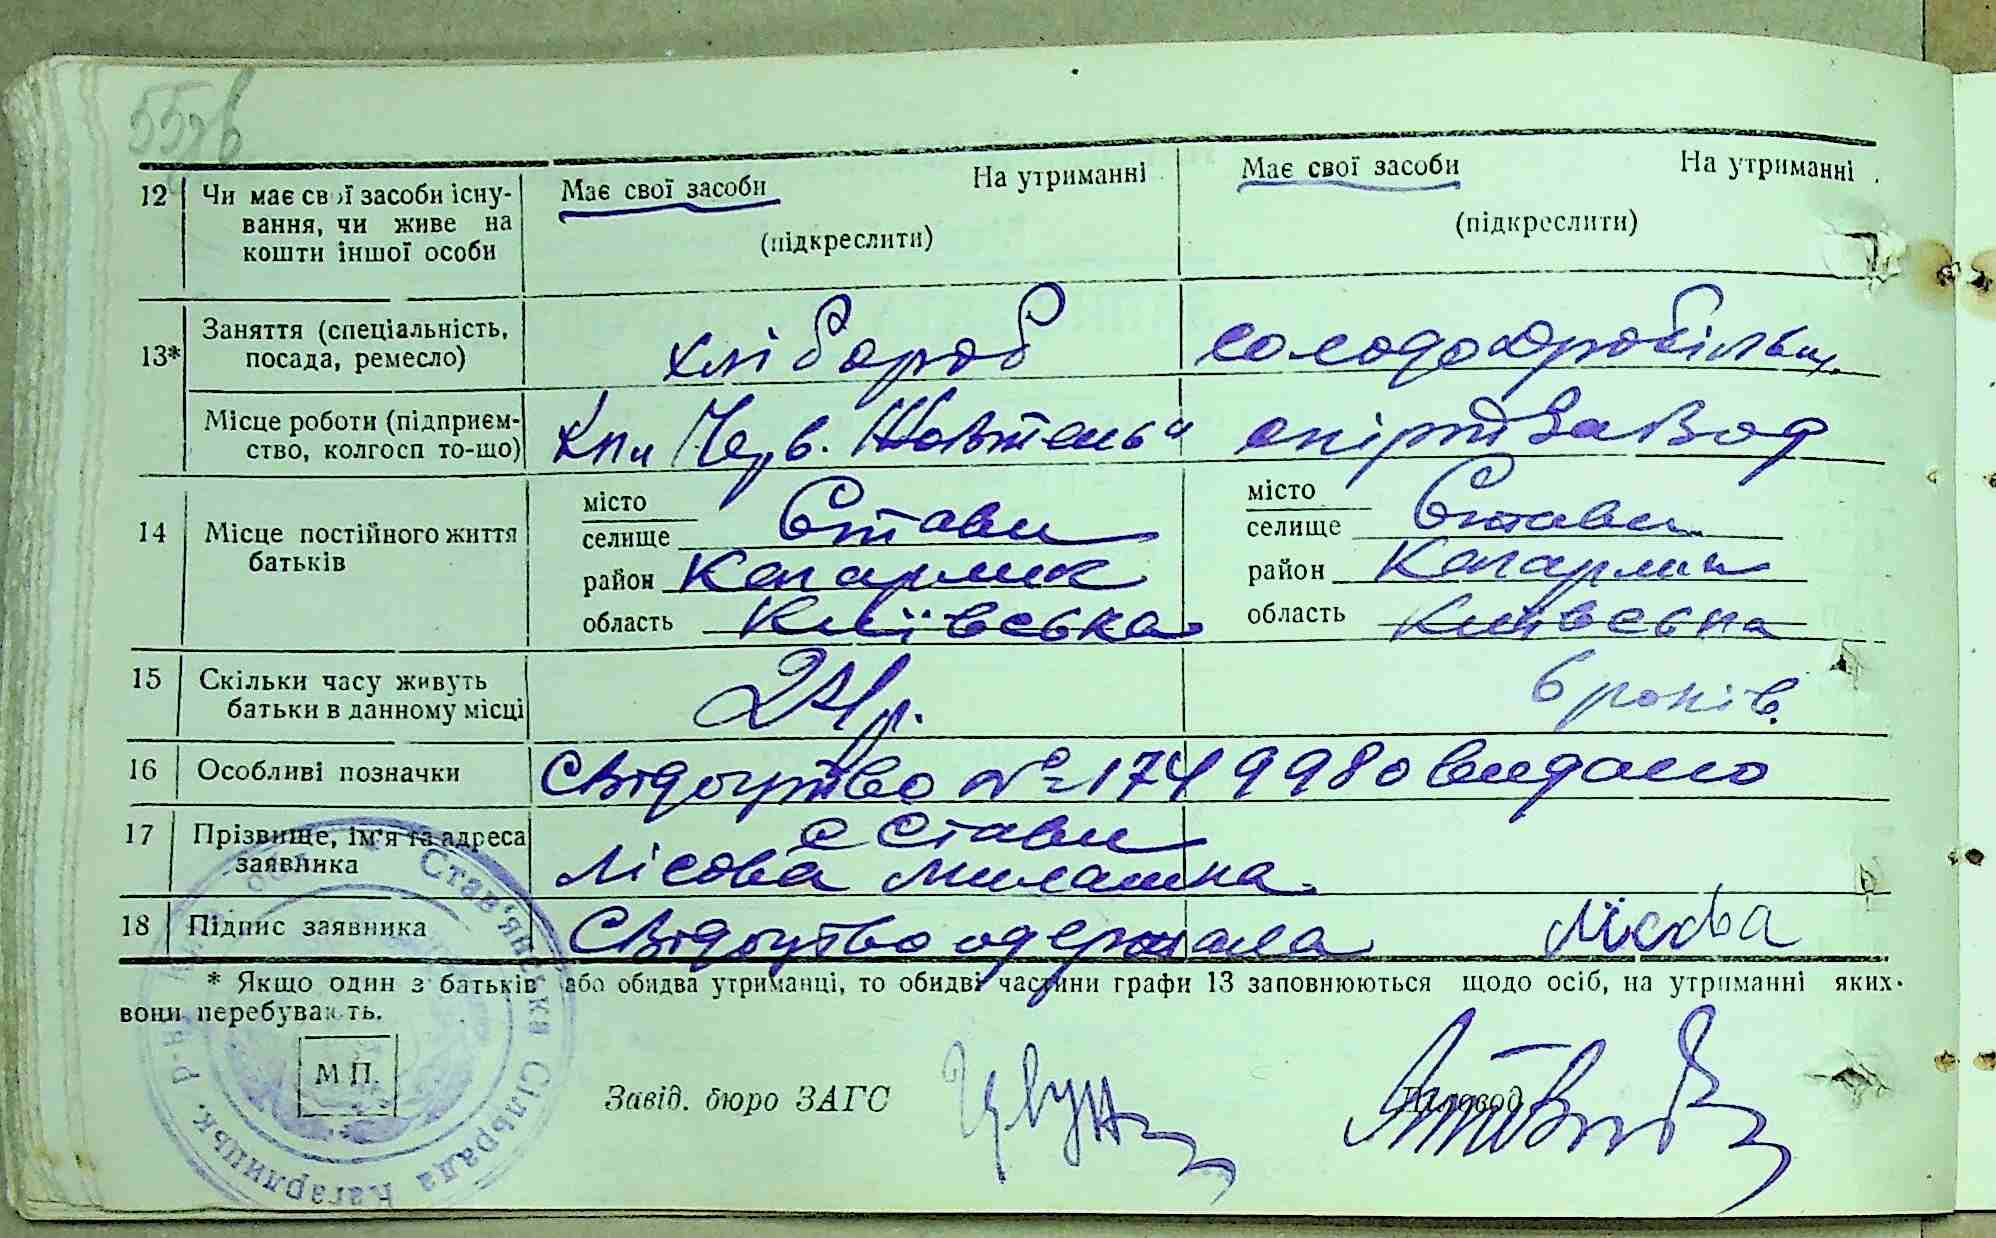 55зв
Має свої засоби На утриманні Має свої засоби На утриманні
12 Чи має свої засоби існу-
вання, чи живе на (підкреслити) (підкреслити)
кошти іншої особи
13* Заняття (спеціальність,
посада, ремесло) хлібороб солододробільщ.
Місце роботи (підприєм-
ство, колгосп то-що) Черв. Жовтень" спіртзавод
14 Місце постійного життя
батьків
місто місто
селище Стави селище Стави
район Кагарлик район Кагарлик
область Київська область Київська
15 Скільки часу живуть
батьки в данному місці 24 р. 6 років.
16 Особливі позначки Свідоцтво № 1749980 видано
17 Прізвище, ім'я та адреса с Стави
заявника Лісова Милашка.
18 Підпис заявника Свідоцтво одержала Лісова
* Якщо один з батьків або обидва утриманці, то обидві частини графи 13 заповнюються щодо осіб, на утриманні яких
вони перебувають.
М П.
Завід. бюро ЗАГС Діловод
Став'янська Сільрада Кагарлицьк. р-ну